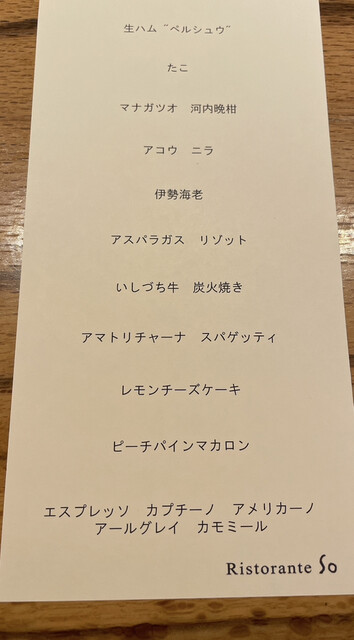 生ハム “ペルシュウ”
たこ
マナガツオ　河内晩柑
アコウ　ニラ
伊勢海老
アスパラガス　リゾット
いしづち牛　炭火焼き
アマトリチャーナ　スパゲッティ
レモンチーズケーキ
ピーチパインマカロン
エスプレッソ　カプチーノ　アメリカーノ
アールグレイ　カモミール
Ristorante So